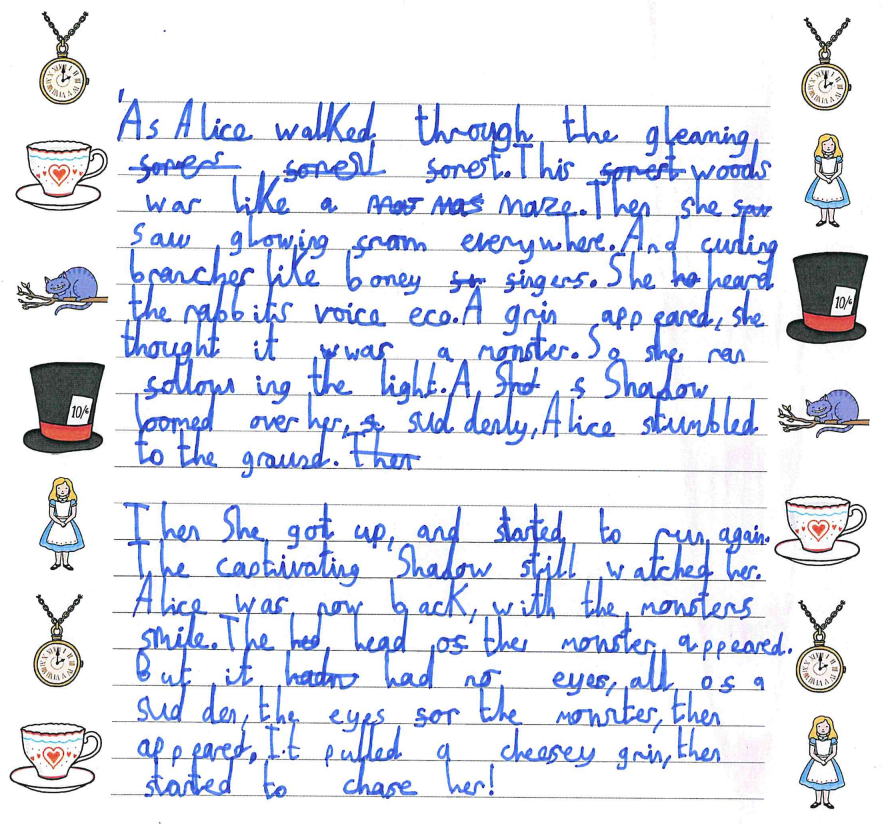 'As Alice walked through the gleaming
forest. This forest woods
was like a maze. Then she saw
saw glowing from everywhere. And curling
branches like boney fingers. She heard
the rabbits voice eco. A grin appeared, she
thought it wwas a monster. So she ran
following the light. A Shadow
loomed over her, suddenly, Alice stumbled
to the graund. Then
Then She got up, and started to run again.
The captivating Shadow still watched her.
Alice was now back, with the monsters
smile. The head of the monster appeared.
But it had no eyes, all of a
sudden, the eyes for the monster, then
appeared. It pulled a cheesey grin, then
started to chase her!
10/6
10/6